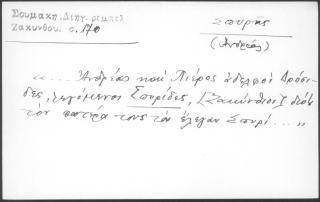 Σουμάκη. Διήγ. ρεμπελ.
Ζακύνθου. σ. 170
Σπυρῆς
(Ἀνδρέας)
«... Ἀνδρέας καί Πιέρος ἀδελφοί Δρόσι-
δες, λεγόμενοι Σπυρίδες, [Ζακύνθιοι] διότι
τόν πατέρα τους τόν ἔλεγαν Σπυρί...»